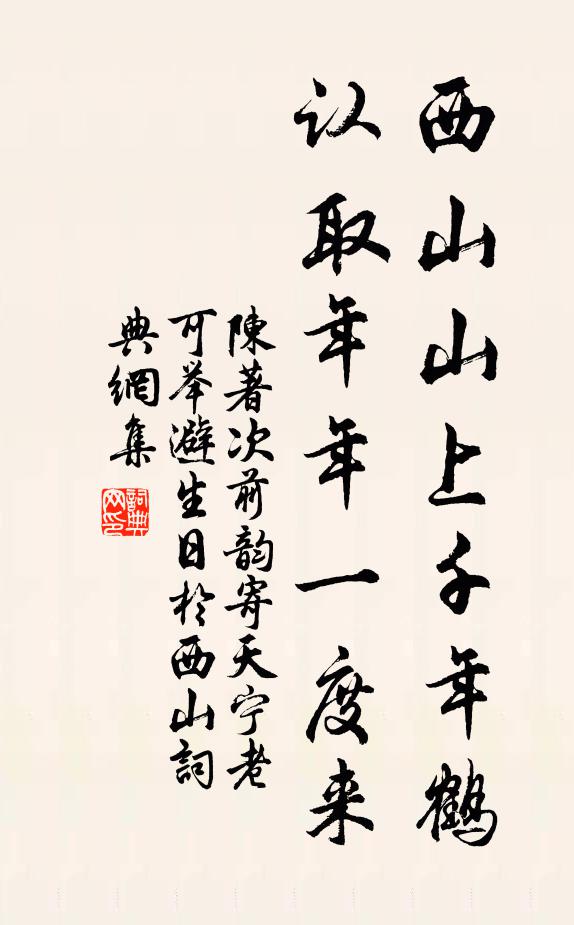 西山山上千年鶴
认取年年一度来
陳著次前韵寄天宁老
可举避生日於西山詞
典網集
詞典
网印